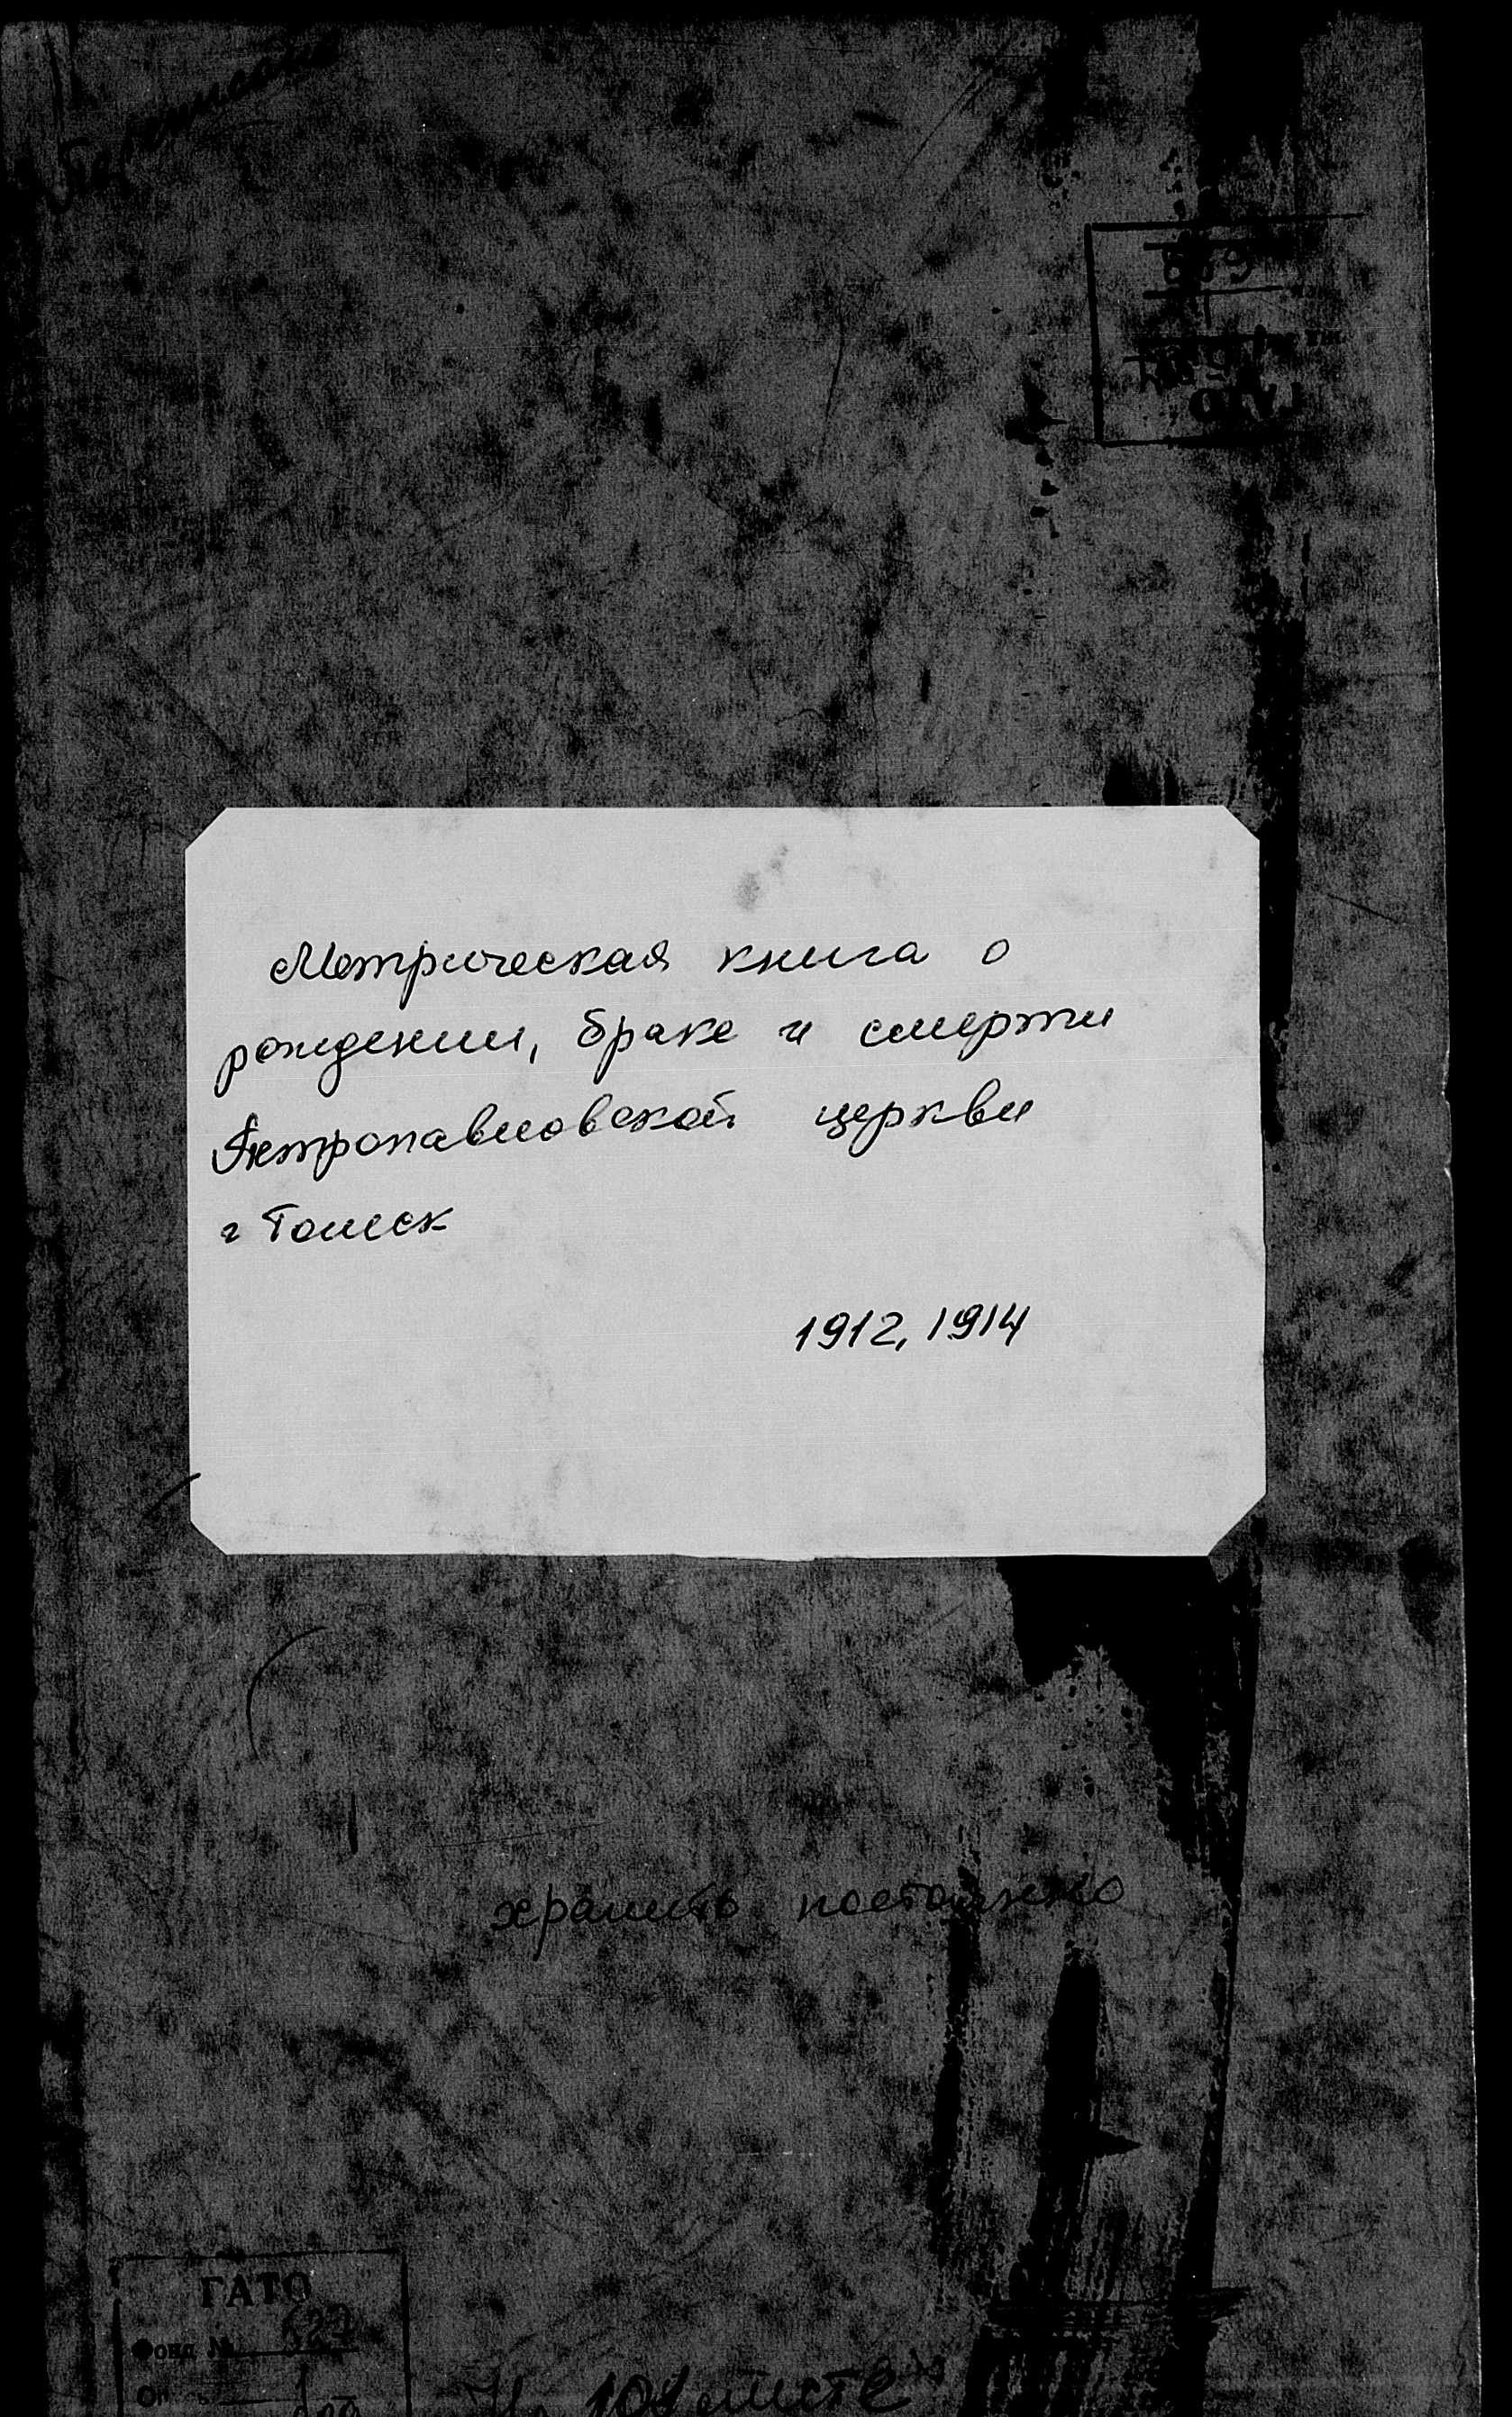 Метрическая книга о
рождении, браке и смерти
Петропавловской церкви
г Томск
1912, 1914
хранить постоянно
ГАТО
Фонд № 527
листе